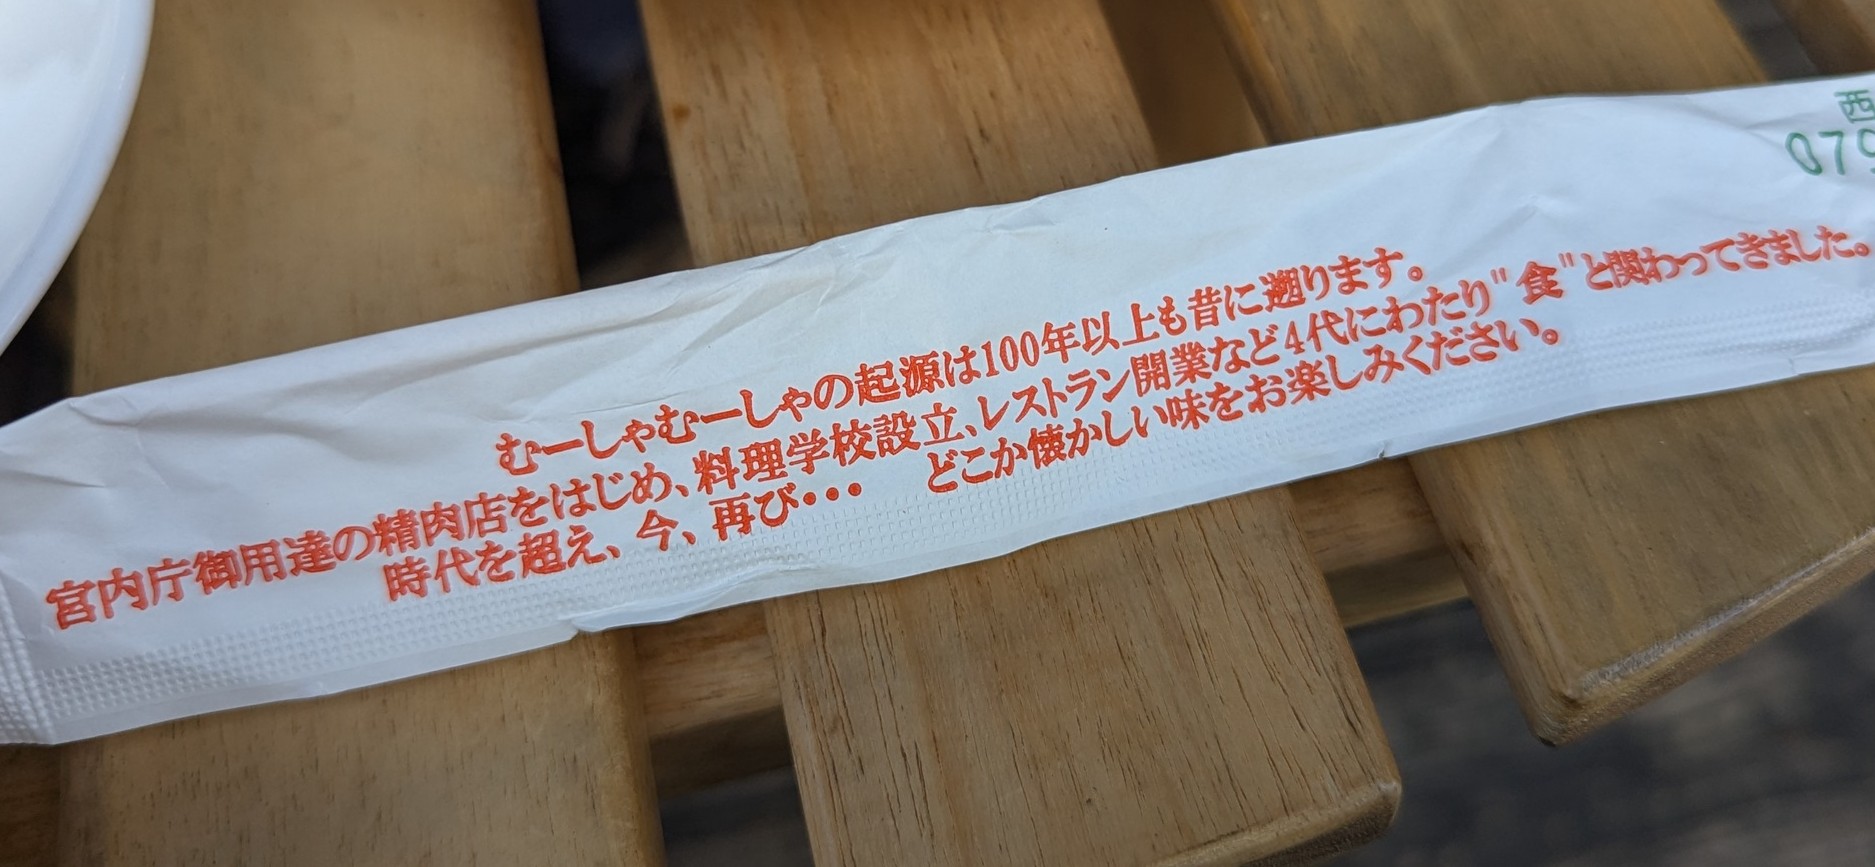 西
079
むーしゃむーしゃの起源は100年以上も昔に遡ります。
宮内庁御用達の精肉店をはじめ、料理学校設立、レストラン開業など4代にわたり"食"と関わってきました。
時代を超え、今、再び・・・　どこか懐かしい味をお楽しみください。